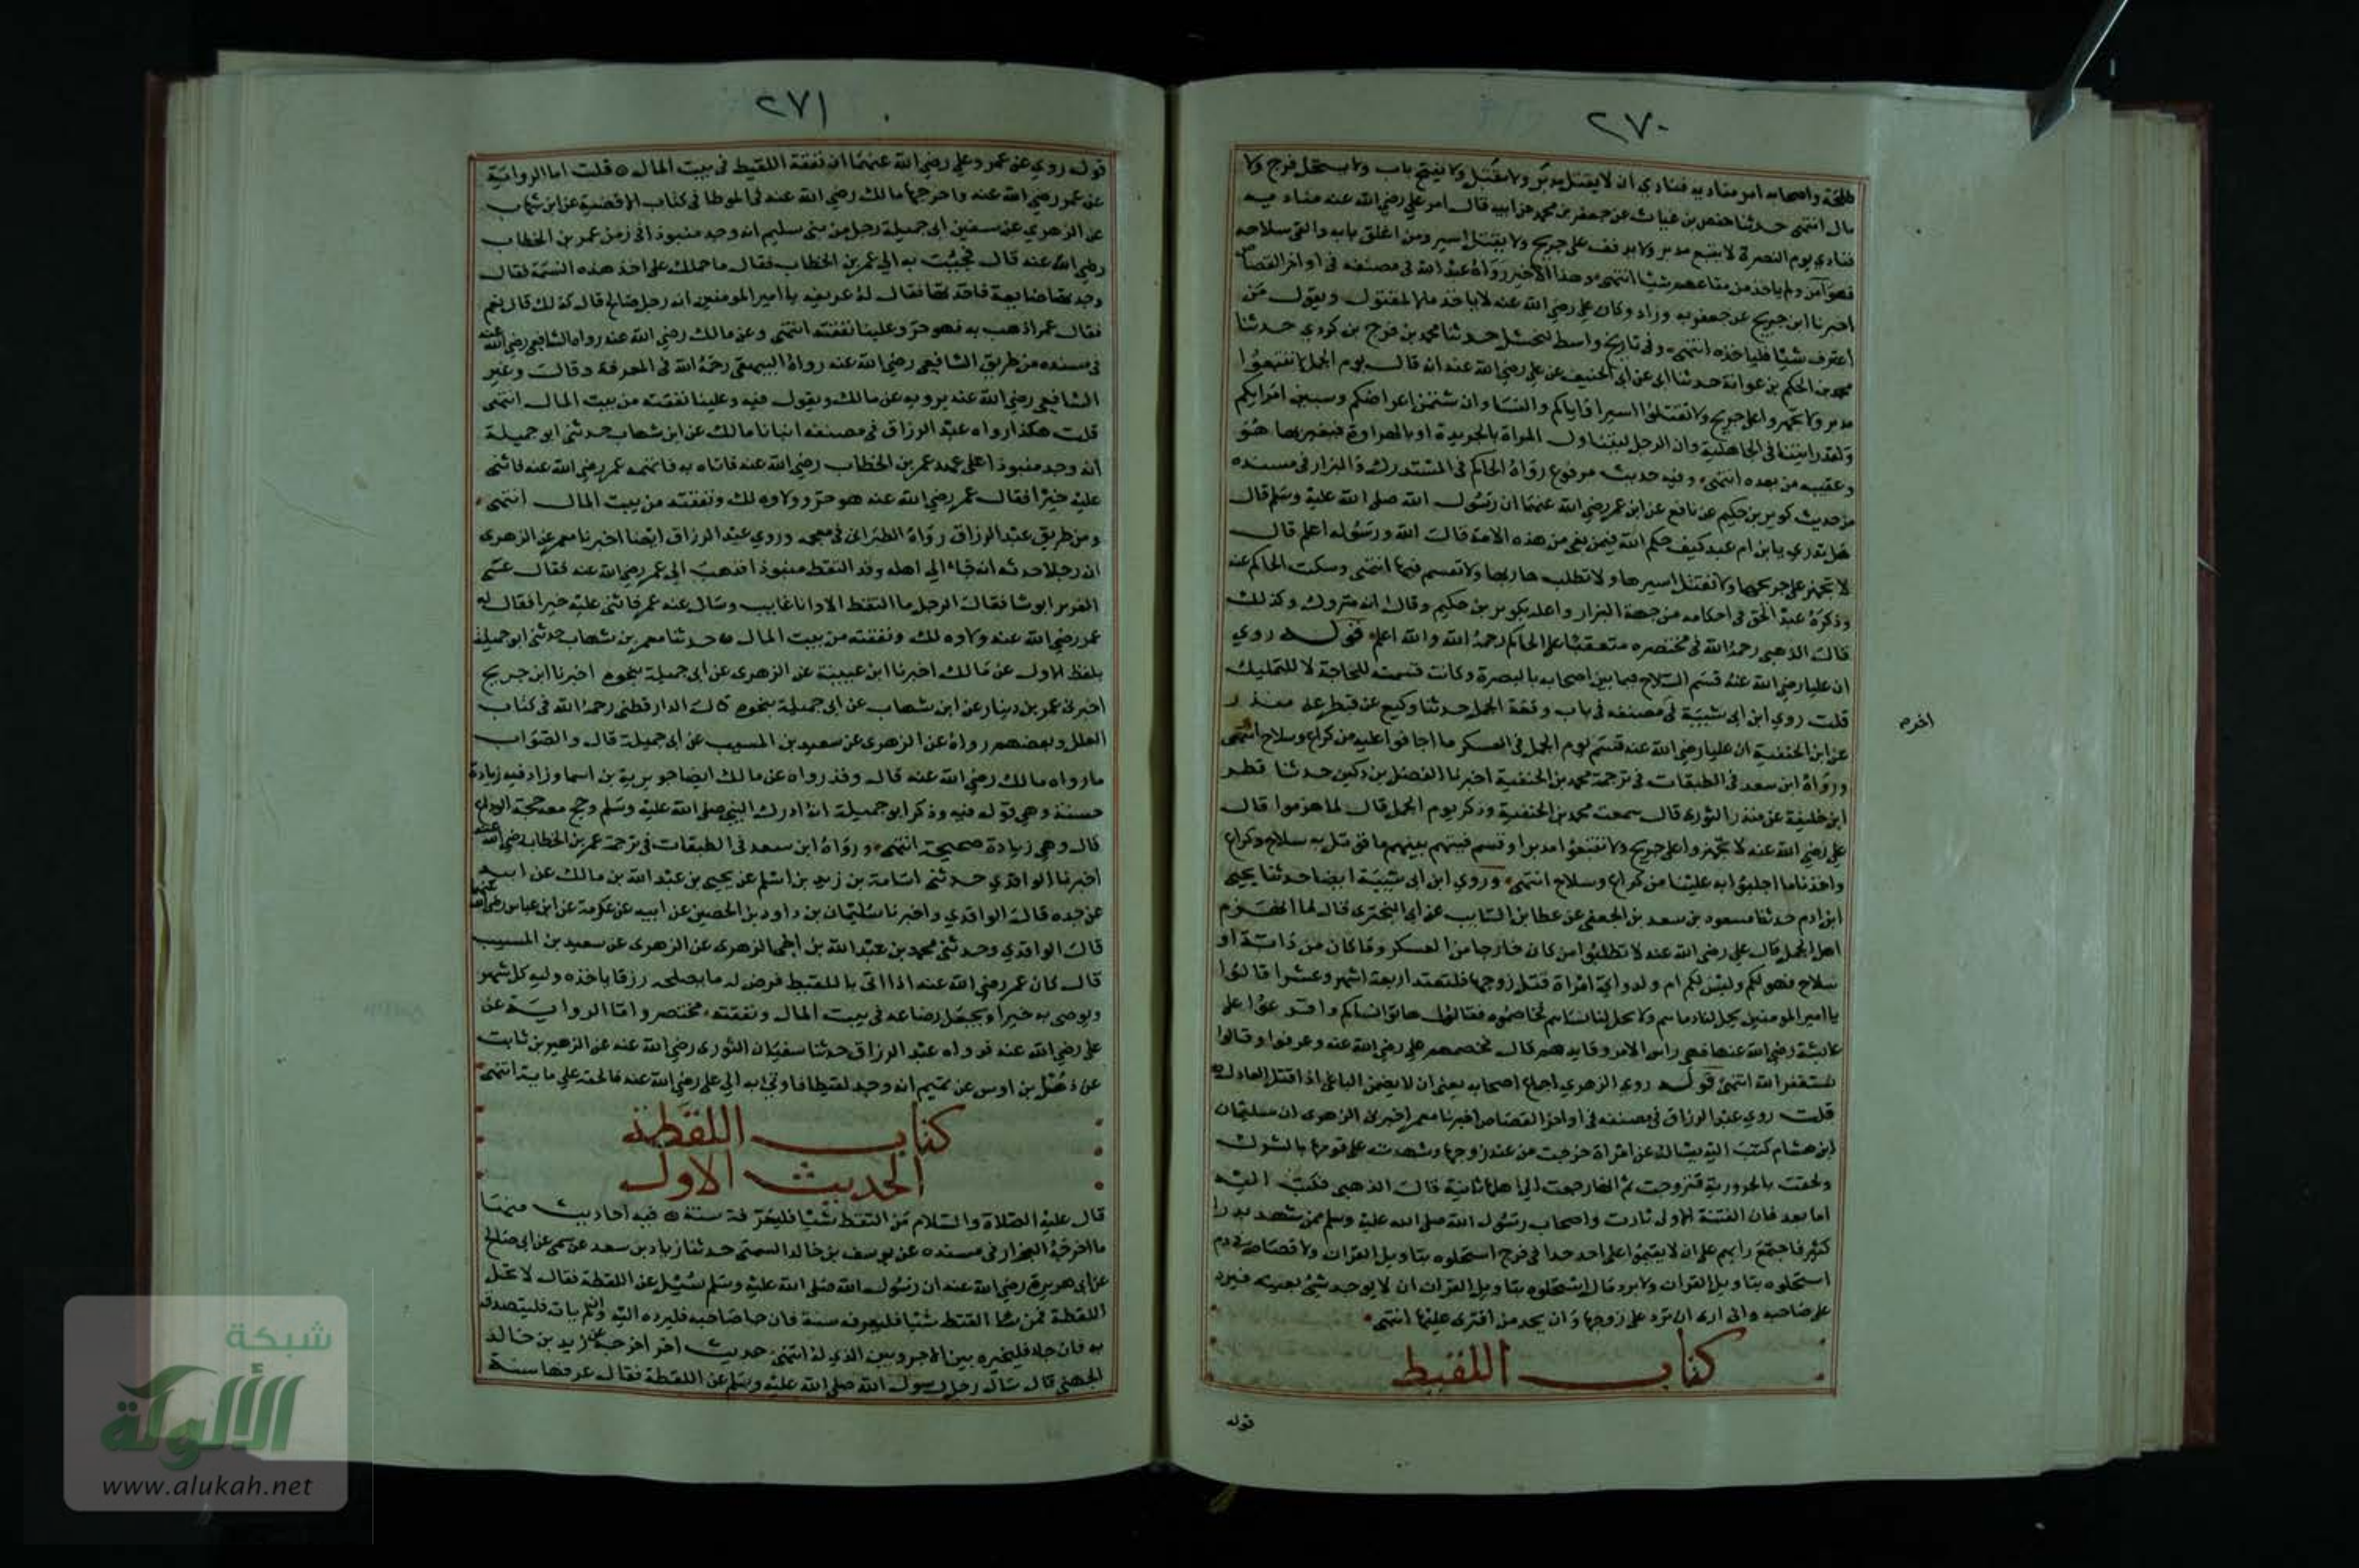 ٢٧٠
طلحة واصحابه امر مناديه فنادي ان لا يقتل مدبر ولا مقبل ولا يفتح باب ولا يستحل فرج ولا
مال انتهى حدثنا حفص بن غياث عن جعفر بن محمد عن ابيه قال امر علي رضي الله عنه مناديه
فنادي يوم البصرة لا يتبع مدبر ولا يدفف على جريح ولا يقتل اسير ومن اغلق بابه والقى سلاحه
فهو آمن ولم ياخذ من متاعهم شيئا انتهى وهذا الاخير رواه عبد الله في مصنفه في اواخر القصاص
اخبرنا ابن جريج عن جعفر به وزاد وكان علي رضي الله عنه لا ياخذ مالا لمقتول ويقول من
اعترف شيئا فلياخذه انتهى وفي تاريخ واسط لبحشل حدثنا محمد بن فرج بن كردي حدثنا
محمد بن الحكم بن عوانة حدثنا ابي عن ابي عن علي رضي الله عنه انه قال يوم الجمل لا تتبعوا
مدبر ولا تجهزوا على جريح ولا تقتلوا اسيرا واياكم والنسا وان شتمن اعراضكم وسببن امرايكم
ولقد رايتنا في الجاهلية وان الرجل ليتناول المراة بالجريدة او بالهراوة فيعير بها هو
وعقبه من بعده انتهى وفيه حديث مرفوع رواه الحاكم في المستدرك والبزار في مسنده
من حديث كوثر بن حكيم عن نافع عن ابن عمر رضي الله عنهما ان رسول الله صلى الله عليه وسلم قال
هل تدري يا بن ام عبد كيف حكم الله فيمن بغى من هذه الامة قال الله ورسوله اعلم قال
لا تجهز على جريحها ولا تقتل اسيرها ولا تطلب هاربها ولا تقسم فيها انتهى وسكت الحاكم عنه
وذكره عبد الحق في احكامه من جهة البزار واعله بكوثر بن حكيم وقال انه متروك وكذلك
قال الذهبي رحمه الله في مختصره متعقبا على الحاكم رحمه الله والله اعلم قوله روي
ان عليا رضي الله عنه قسم السلاح فيما بين اصحابه بالبصرة وكانت قسمته للحاجة لا للتمليك
قلت روي ابن ابي شيبة في مصنفه في باب وقعة الجمل حدثنا وكيع عن فطر عن منذر
اخره
عن ابن الحنفية ان عليا رضي الله عنه قسم يوم الجمل في العسكر ما اجافوا عليه من كراع وسلاح انتهى
ورواه ابن سعد في الطبقات في ترجمة محمد بن الحنفية اخبرنا الفضل بن دكين حدثنا فطر
ابن خليفة عن منذر الثوري قال سمعت محمد بن الحنفية وذكر يوم الجمل قال لما هزموا قال
علي رضي الله عنه لا تجهزوا على جريح ولا تتبعوا مدبرا وقسم فيئهم بينهم ما قوتل به سلاح وكراع
واخذنا ما اجلبوا به علينا من كراع وسلاح انتهى وروي ابن ابي شيبة ايضا حدثنا يحيى
ابن ادم حدثنا مسعود بن سعد بن الجعفي عن عطا بن السايب عن ابي البختري قال لما انهزم
اهل الجمل قال علي رضي الله عنه لا تطلبوا من كان خارجا من العسكر وما كان من دابة او
سلاح فهو لكم وليس لكم ام ولد واي امراة قتل زوجها فلتعتد اربعة اشهر وعشرا قالوا
يا امير المومنين يحل لنا دماهم ولا يحل لنا نساهم فخاصموه فقالوا هاتوا نساكم واقرعوا على
عايشة رضي الله عنها فهي راس الامر وقايدهم قال فخصمهم علي رضي الله عنه وعرفوا وقالوا
نستغفر الله انتهى قوله روي الزهري اجماع اصحابه يعني ان لا يضمن الباغي اذا قتل العادل
قلت روي عبد الرزاق في مصنفه في اواخر القصاص اخبرنا معمر اخبرني الزهري ان سليمان
ابن هشام كتب اليه يساله عن امراة خرجت من عند زوجها وشهدت على قومها بالشرك
ولحقت بالحرورية فتزوجت ثم انها رجعت الي اهلها ثانية قال الذهبي فكتب اليه
اما بعد فان الفتنة الاولى ثارت واصحاب رسول الله صلى الله عليه وسلم ممن شهد بدرا
كثير فاجتمع رايهم على ان لا يقيموا على احد حدا في فرج استحلوه بتاويل القران ولا قصاص في دم
استحلوه بتاويل القران ولا يرد مال استحلوه بتاويل القران ان لا يوجد شي بعينه فيرد
على صاحبه واني ارى ان ترد على زوجها وان يحد من افترى عليها انتهى
كتاب اللقيط
قوله
٢٧١
قوله روي عن عمر وعلي رضي الله عنهما ان نفقة اللقيط في بيت المال قلت اما الرواية
عن عمر رضي الله عنه واخرجها مالك رضي الله عنه في الموطا في كتاب الاقضية عن ابن شهاب
عن الزهري عن سنين ابي جميلة رجل من بني سليم انه وجد منبوذا في زمن عمر بن الخطاب
رضي الله عنه قال فجئت به الي عمر بن الخطاب فقال ما حملك على اخذ هذه النسمة فقال
وجدتها ضايعة فاخذتها فقال له عريفه يا امير المومنين انه رجل صالح قال كذلك قال نعم
فقال عمر اذهب به فهو حر وعلينا نفقته انتهى وعن مالك رضي الله عنه رواه الشافعي رضي الله عنه
في مسنده من طريق الشافعي رضي الله عنه رواه البيهقي رحمه الله في المعرفة وقال وغير
الشافعي رضي الله عنه يرويه عن مالك ويقول فيه وعلينا نفقته من بيت المال انتهى
قلت هكذا رواه عبد الرزاق في مصنفه انبانا مالك عن ابن شهاب حدثني ابو جميلة
انه وجد منبوذا على عهد عمر بن الخطاب رضي الله عنه فاتاه به فاتهمه عمر رضي الله عنه فاثنى
عليه خيرا فقال عمر رضي الله عنه هو حر وولاوه لك ونفقته من بيت المال انتهى
ومن طريق عبد الرزاق رواه الطبراني في معجمه وروي عبد الرزاق ايضا اخبرنا معمر عن الزهري
ان رجلا حدثه انه جاء الي اهله وقد التقط منبوذا فذهب الي عمر رضي الله عنه فقال عسى
الغوير ابوسا فقال الرجل ما التقط الا وانا غايب وسال عنه عمر فاثني عليه خيرا فقال له
عمر رضي الله عنه ولاوه لك ونفقته من بيت المال حدثنا معمر بن شهاب حدثني ابو جميلة
بلفظ الاول عن مالك اخبرنا ابن عيينة عن الزهري عن ابي جميلة بنحوه اخبرنا ابن جريج
اخبرني عمر بن دينار عن ابن شهاب عن ابي جميلة بنحوه قال الدارقطني رحمه الله في كتاب
العلل وبعضهم رواه عن الزهري عن سعيد بن المسيب عن ابي جميلة قال والصواب
ما رواه مالك رضي الله عنه قال وقد رواه عن مالك ايضا جويرية بن اسما وزاد فيه زيادة
حسنة وهي قوله فيه وذكر ابو جميلة انه ادرك النبي صلى الله عليه وسلم وحج معه حجة الوداع
قال وهي زيادة صحيحة انتهى ورواه ابن سعد في الطبقات في ترجمة عمر بن الخطاب رضي الله عنه
اخبرنا الواقدي حدثني اسامة بن زيد بن اسلم عن يحيى بن عبد الله بن مالك عن ابيه
عن جده قال الواقدي واخبرنا سليمان بن داود بن الحصين عن ابيه عن عكرمة عن ابن عباس رضي الله عنهما
قال الواقدي وحدثني محمد بن عبد الله بن اخي الزهري عن الزهري عن سعيد بن المسيب
قال كان عمر رضي الله عنه اذا اتي باللقيط فرض له ما يصلحه رزقا ياخذه وليه كل شهر
ويوصي به خيرا ويجعل رضاعه في بيت المال ونفقته مختصر واما الرواية عن
علي رضي الله عنه فرواه عبد الرزاق حدثنا سفيان الثوري رضي الله عنه عن الزهير بن ثابت
عن ذهل بن اوس عن تميم انه وجد لقيطا فاوتي به الي علي رضي الله عنه فالحقه علي ماية انتهى
كتاب اللقطة
الحديث الاول
قال عليه الصلاة والسلام من التقط شيئا فليعرفه سنة فيه احاديث منها
ما اخرجه البزار في مسنده عن يوسف بن خالد السمتي حدثنا زياد بن سعد عن سمي عن ابي صالح
عن ابي هريرة رضي الله عنه ان رسول الله صلى الله عليه وسلم سئيل عن اللقطة فقال لا تحل
اللقطة فمن التقط شيئا فليعرفه سنة فان جا صاحبه فليرده اليه وان لم يات فليتصدق
به فان جاء فليخيره بين الاجر وبين الذي له انتهى حديث اخر اخرجه عن زيد بن خالد
الجهني قال سال رجل رسول الله صلى الله عليه وسلم عن اللقطة فقال عرفها سنة
شبكة
الألوكة
www.alukah.net